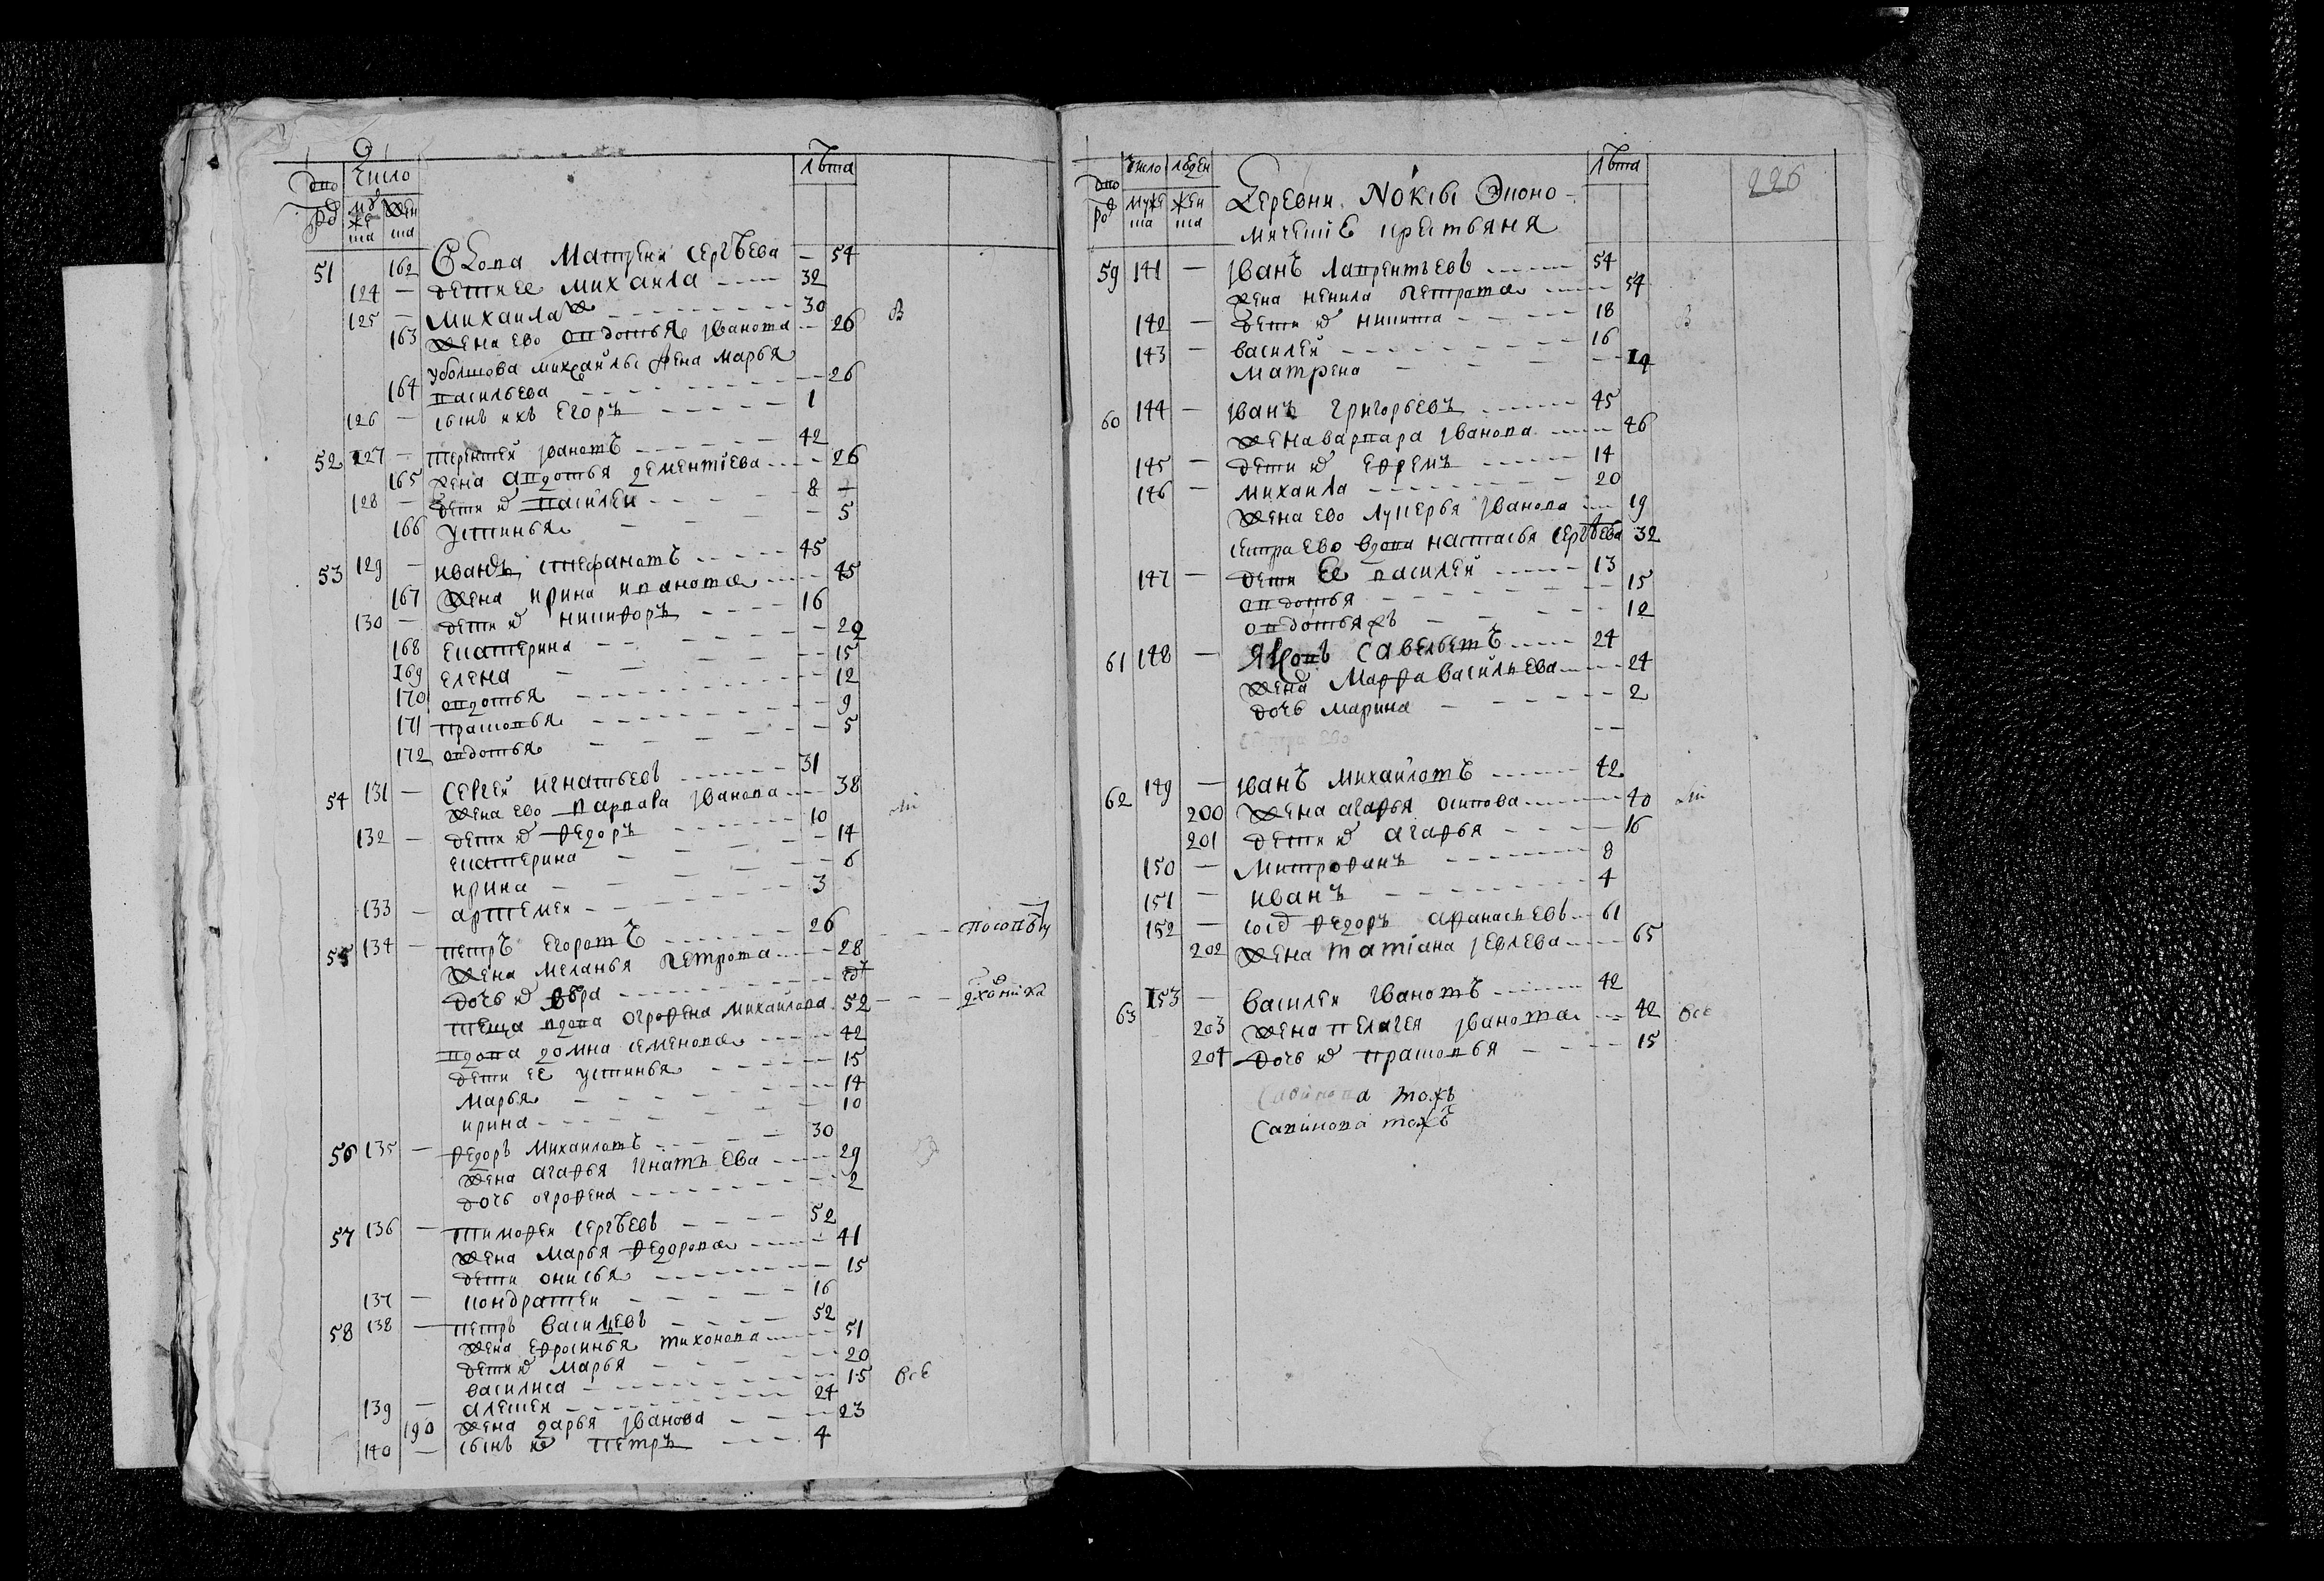 Число лѣта
51 162 Вдова Матрена Сергѣева — 54
124 — дети ее Михаила 32
125 — Михаилаж 30
163 жена ево Овдотья Иванова 26 В
Уболшова Михаилы жена Марья
164 Васильева 26
126 — сынъ ихъ Егоръ 1
52 127 — Терентей Ивановъ 42
165 жена Авдотья Дементiева 26
128 — дети их Василей 8
166 Устинья 5
53 129 — Иванъ Степановъ 45
167 жена Ирина Иванова 45
130 — дети их Никифоръ 16
168 Екатерина 20
169 Елена 15
170 Овдотья 12
171 Прасковья 9
172 Овдотья 5
54 131 — Сергей Игнатьевъ 31
жена ево Варвара Иванова 38
132 — дети их Федоръ 10
Екатерина 14
Ирина 6
133 — Артемей 3
55 134 — Петръ Егоровъ 26
жена Меланья Петрова 28
дочь их Вѣра
Теща вдова Огрофена Михаилова 52
вдова Домна Семенова 42
дети ее Устинья 15
Марья 14
Ирина 10
56 135 — Федоръ Михаиловъ 30
жена Агафья Игнатьева 29
дочь Огрофена 2
57 136 — Тимофей Сергѣевъ 52
жена Марья Федорова 41
дети Онисья 15
137 — Кондратей 16
58 138 — Петръ Васильевъ 52
жена Ефросинья Тихонова 51
дети их Марья 20
Василиса 15 всѣ
139 — Алексей 24
190 жена Дарья Иванова 23
140 — сынъ их Петръ 4
число людей лѣта
226
Деревни Nокiы Эконо-
мическiе крестьяня
59 141 — Иванъ Лаврентьевъ 54
жена Ненила Петрова 54
142 — дети их Никита 18 В
143 — Василей 16
Матрена 19
60 144 — Иванъ Григорьевъ 45
жена Варвара Иванова 46
145 — дети их Ефремъ 14
146 — Михаила 20
жена ево Лукерья Иванова 19
сестра ево вдова Настасья Сергѣева 32
147 — дети ее Василей 13
Овдотья 15
Овдотьяжъ 12
61 148 — Яковъ Савельевъ 24
жена Марфа Васильева 24
дочь Марина 2
сестра ево
62 149 — Иванъ Михайловъ 42
200 жена Агафья Осипова 40
201 дети их Агафья 16
150 — Митрофанъ 8
151 — Иванъ 4
152 — Федоръ Афанасьевъ 61
202 жена Татiана Iевлева 65
63 153 — Василей Ивановъ 42
203 жена Пелагея Иванова 42 всѣ
204 дочь их Прасковья 15
Савинова тожъ
Савинова тожъ